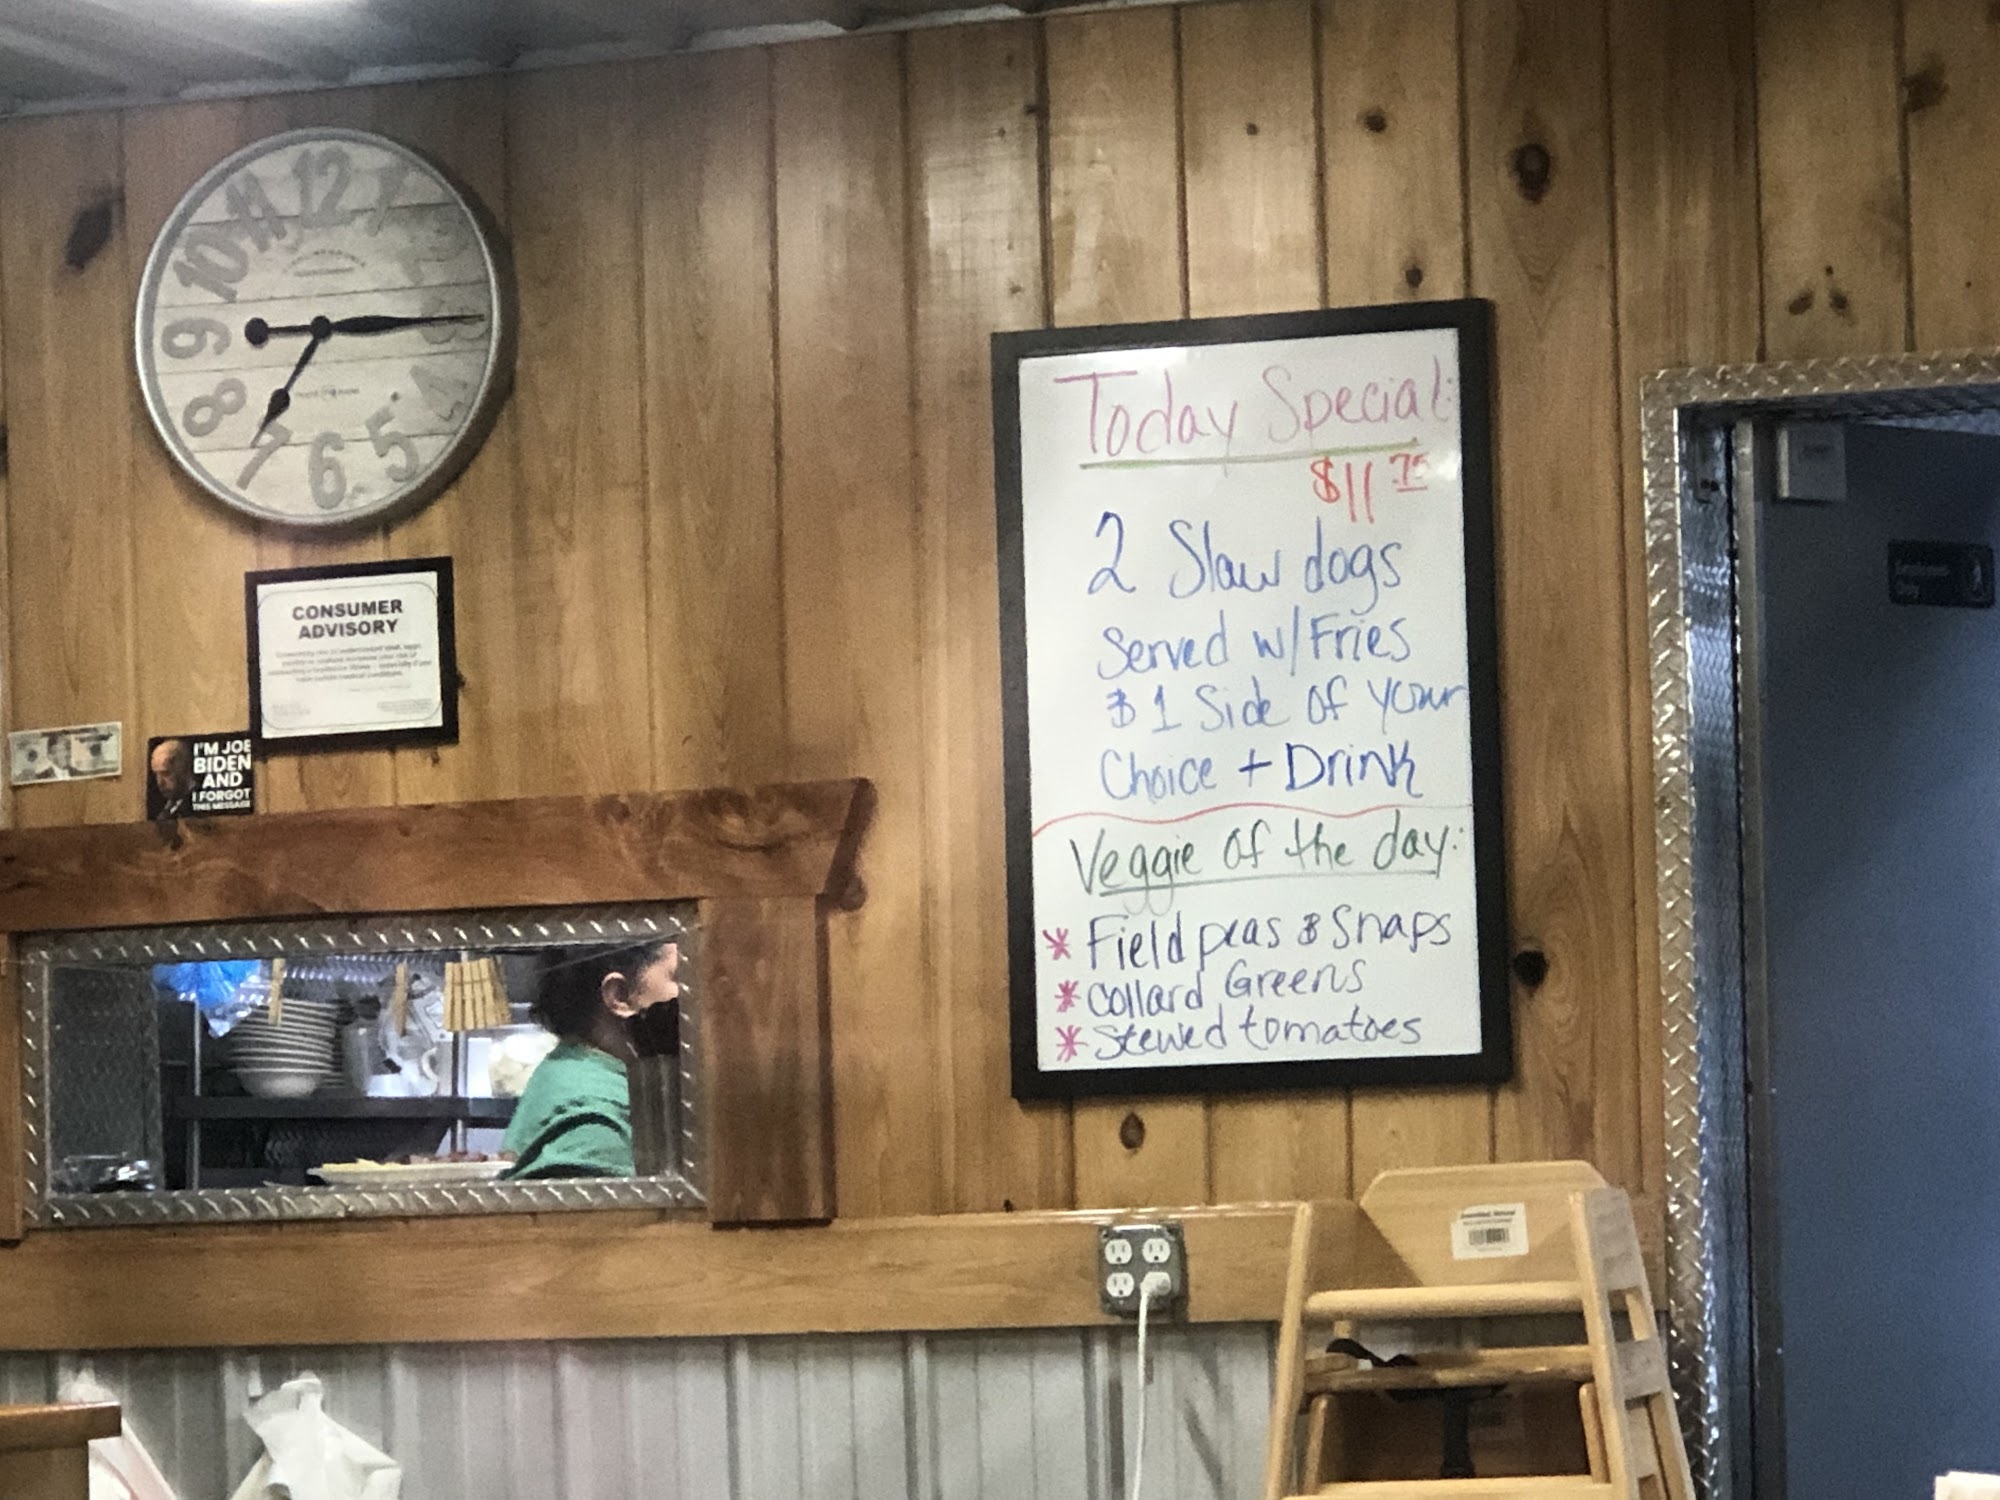 12
1
2
3
4
5
6
7
8
9
10
11
CONSUMER
ADVISORY
I'M JOE
BIDEN
AND
I FORGOT
THIS MESSAGE
Today Special:
$11.75
2 Slaw dogs
Served w/Fries
& 1 Side of your
Choice + Drink
Veggie of the day:
* Field peas & Snaps
* Collard Greens
* Stewed tomatoes